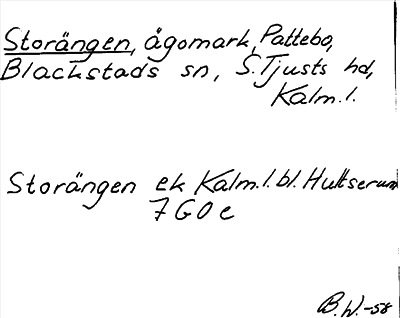 Storängen, ägomark, Pattebo,
Blackstads sn, S. Tjusts hd,
Kalm. l.
Storängen ek Kalm. l. bl. Hultserum
7 G 0 e
B. W. -58